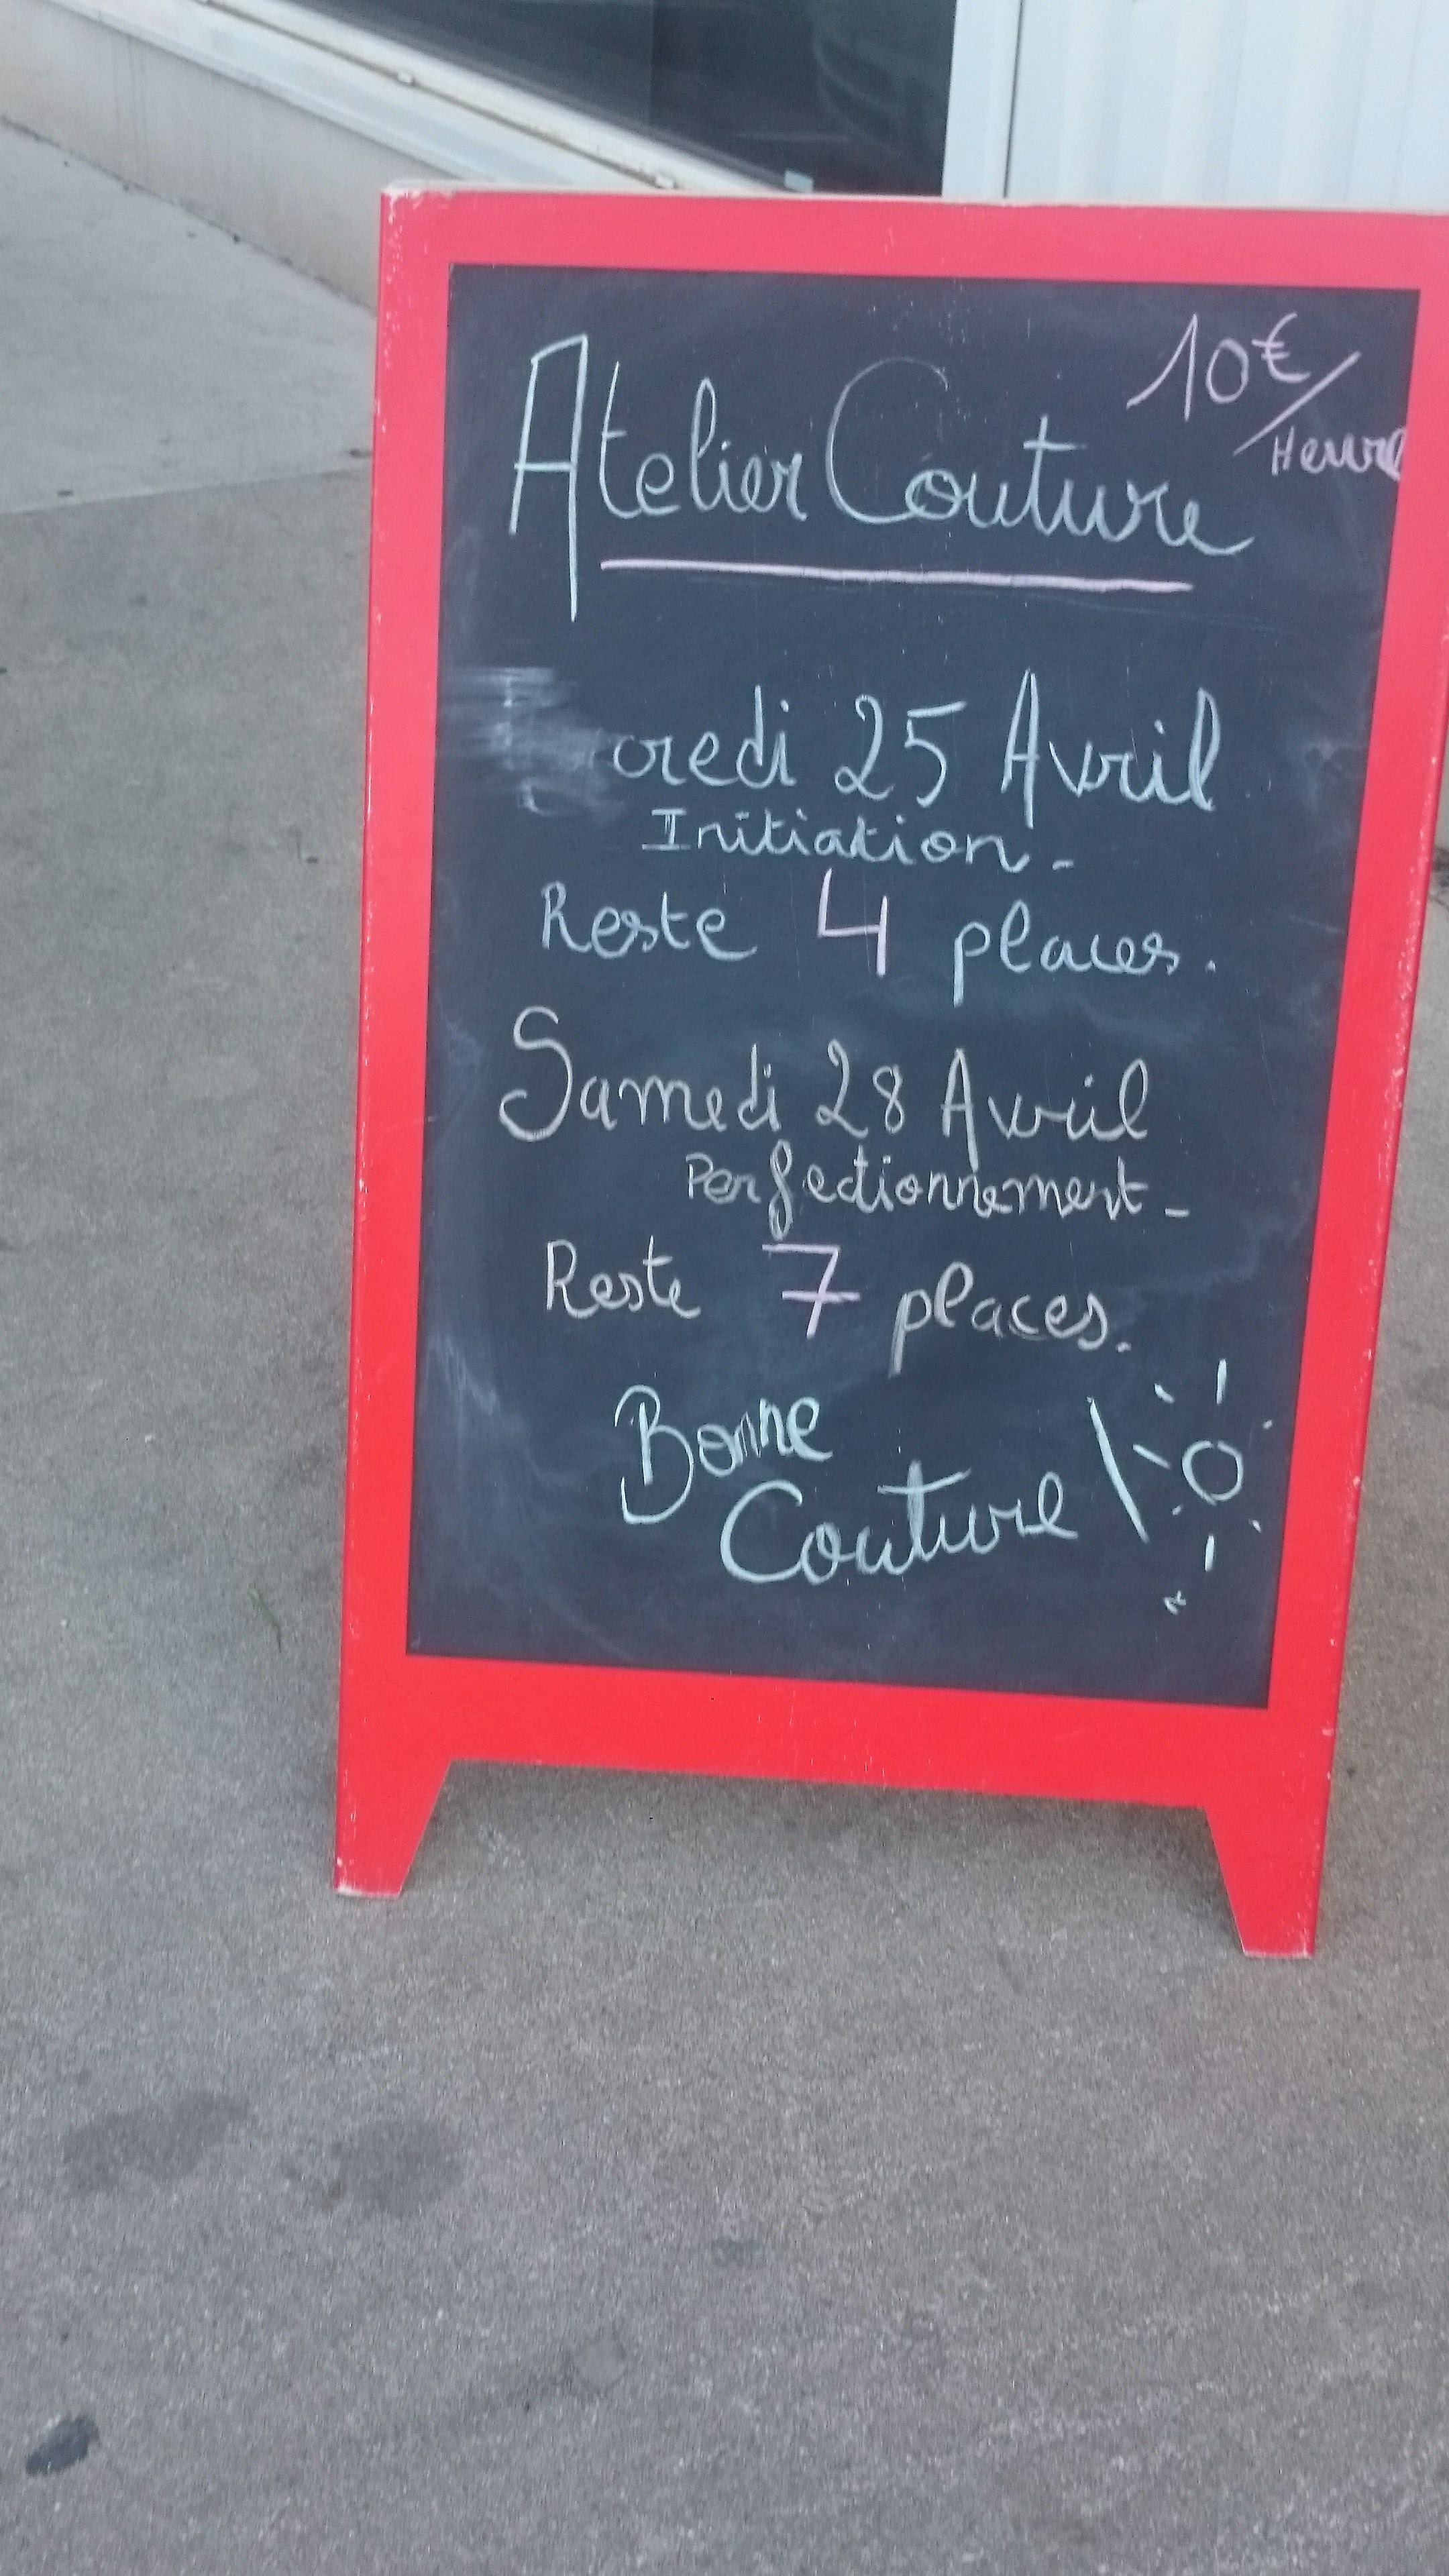 10€/Heure
Atelier Couture
credi 25 Avril
Initiation -
Reste 4 places.
Samedi 28 Avril
Perfectionnement -
Reste 7 places.
Bonne
Couture !